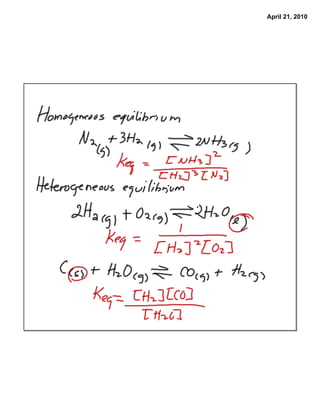 April 21, 2010
Homogeneous equilibrium
N₂(g) + 3H₂(g) ⇌ 2NH₃(g)
Keq = [NH₃]² / [H₂]³[N₂]
Heterogeneous equilibrium
2H₂(g) + O₂(g) ⇌ 2H₂O(l)
Keq = 1 / [H₂]²[O₂]
C(s) + H₂O(g) ⇌ CO(g) + H₂(g)
Keq = [H₂][CO] / [H₂O]